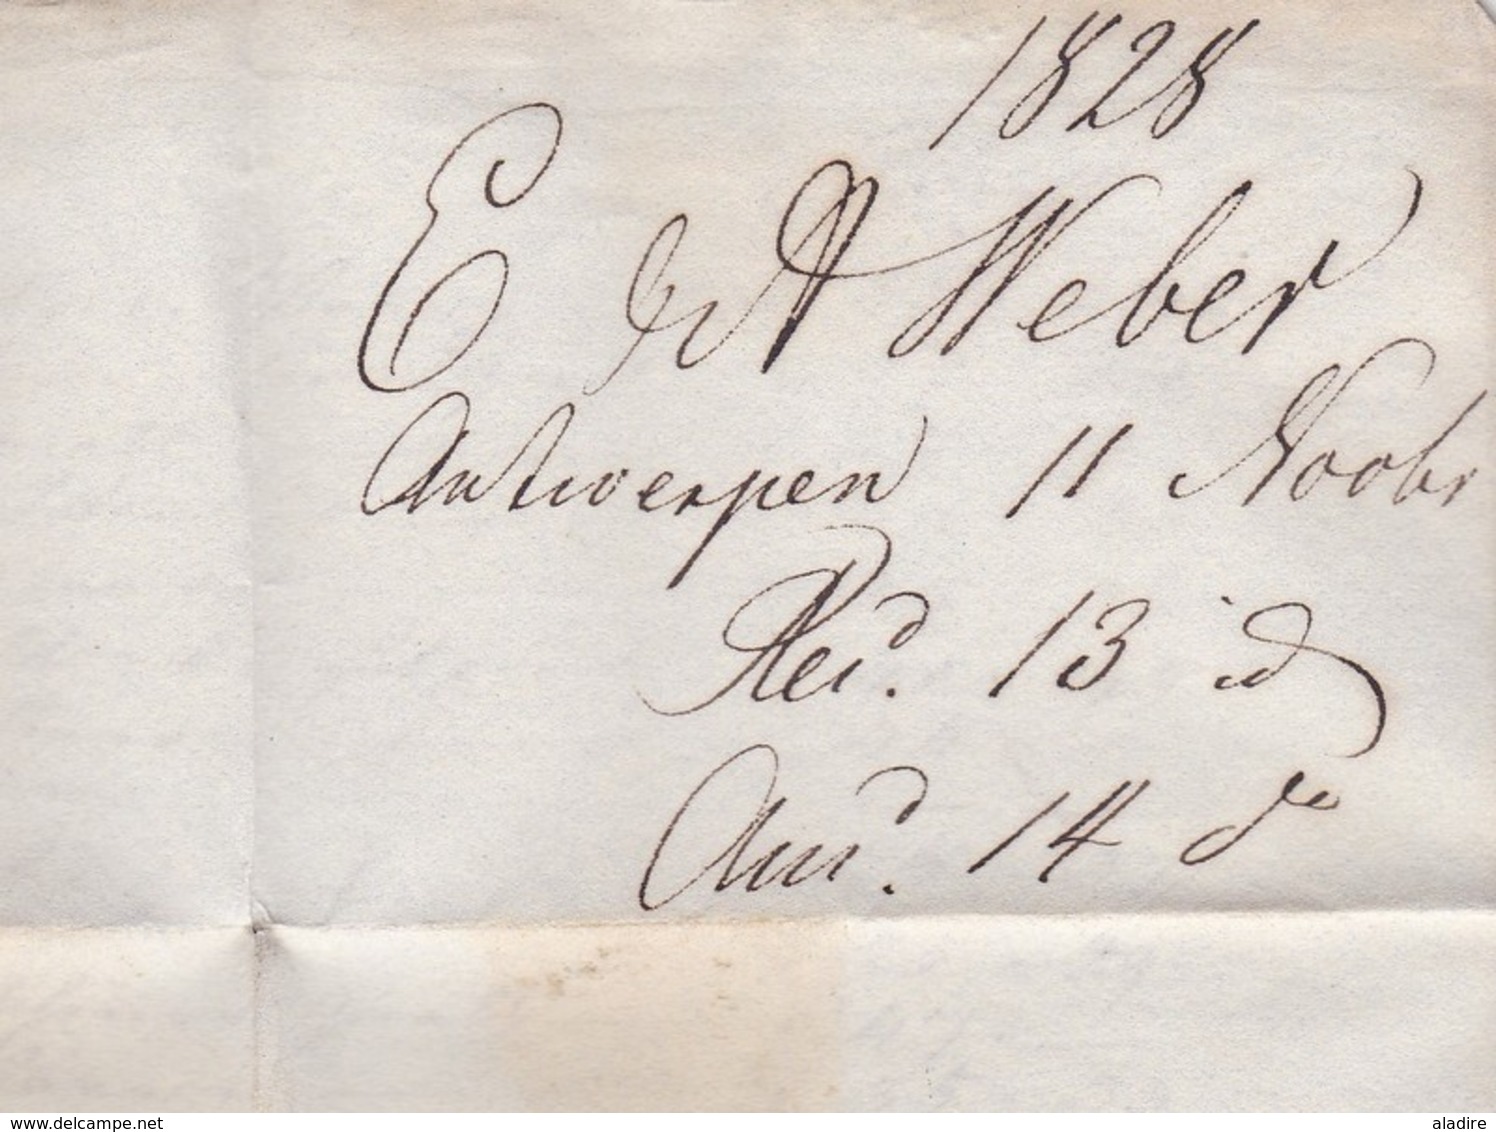 1828
E & A Weber
Antwerpen 11 Novbr
Recd. 13 id
Ansd. 14 do
delcampe.net
aladire